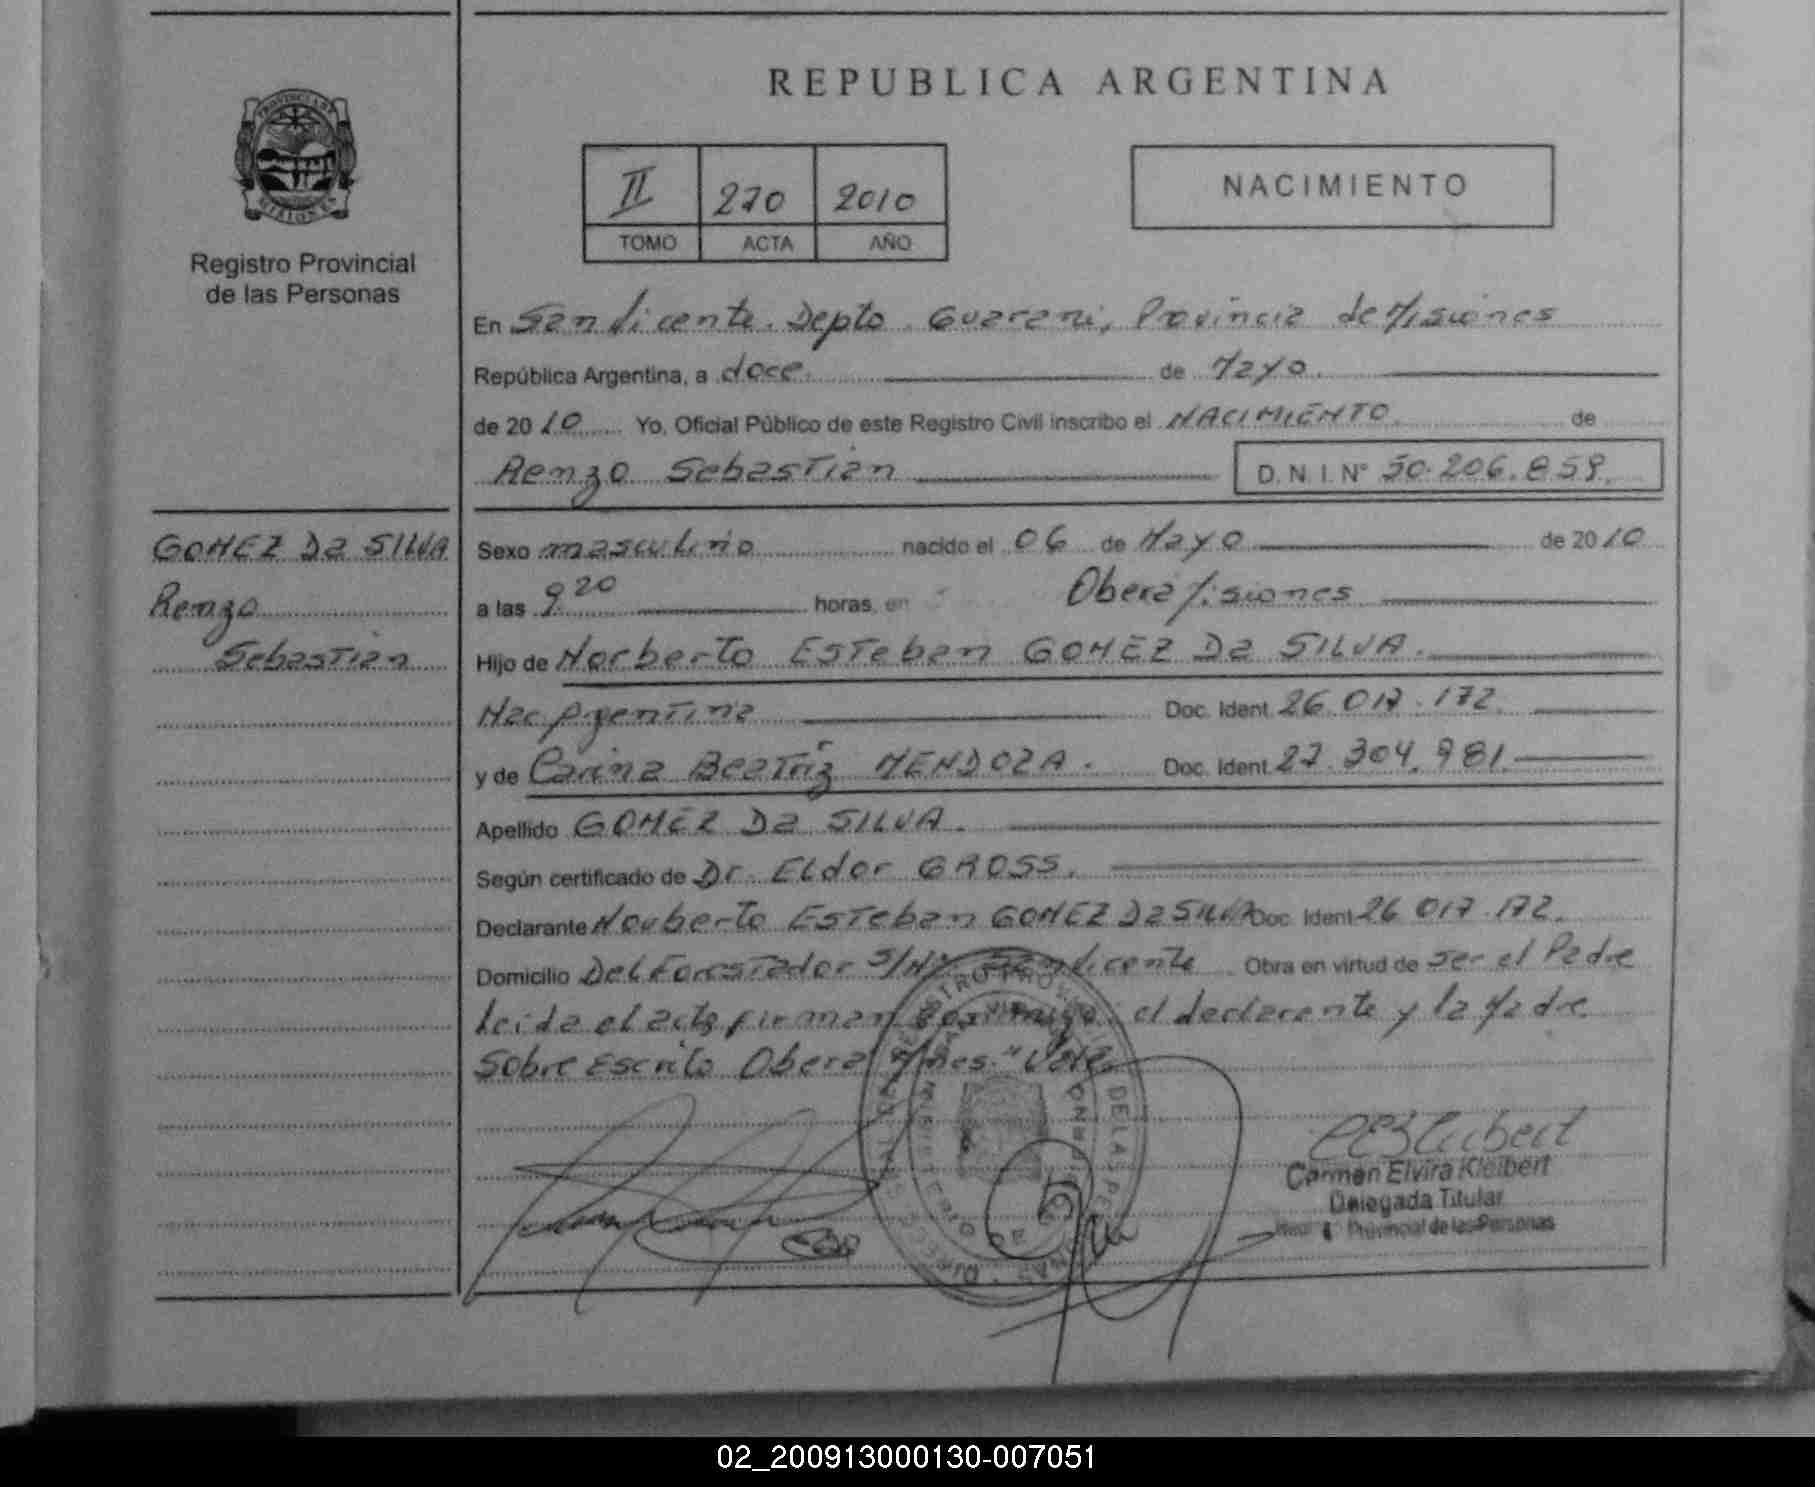 REPUBLICA ARGENTINA
PROVINCIA DE
MISIONES
Registro Provincial
de las Personas
II 270 2010
TOMO ACTA AÑO
NACIMIENTO
En San Vicente. Depto. Guarani, Provincia de Misiones
República Argentina, a doce. de Mayo.
de 2010 Yo, Oficial Público de este Registro Civil inscribo el NACIMIENTO. de
Renzo Sebastian D.N.I. N° 50.206.859.
GOMEZ Da SILVA
Renzo
Sebastian
Sexo masculino nacido el 06 de Mayo de 2010
a las 9 20 horas, en Obera Misiones
Hijo de Norberto Esteban GOMEZ Da SILVA.
Nac Argentina Doc. Ident. 26.017.172.
y de Carina Beatriz MENDOZA. Doc. Ident. 27.304.981.
Apellido GOMEZ Da SILVA.
Según certificado de Dr. Eldor GROSS.
Declarante Norberto Esteban GOMEZ Da SILVA Doc. Ident. 26 017.172.
Domicilio Del Forestador S/Nº San Vicente Obra en virtud de ser el Padre
Leida el acta firman conmigo el declarante y la Madre
Sobre Escrito Obera Mnes." Vale
Carmen Elvira Kleibert
Delegada Titular
Provincial de las Personas
02_200913000130-007051